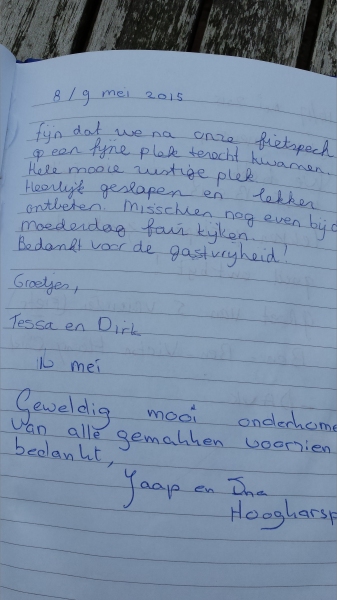 8/9 mei 2015
fijn dat we na onze fietspech
op een fijne plek terecht kwamen.
Hele mooie rustige plek
Heerlijk geslapen en lekker
ontbeten. Misschien nog even bij d
moederdag fair kijken.
Bedankt voor de gastvrijheid!
Groetjes,
Tessa en Dirk
12 mei
Geweldig mooi onderkome
van alle gemakken voorzien
bedankt,
Jaap en Ina
Hoogharsp